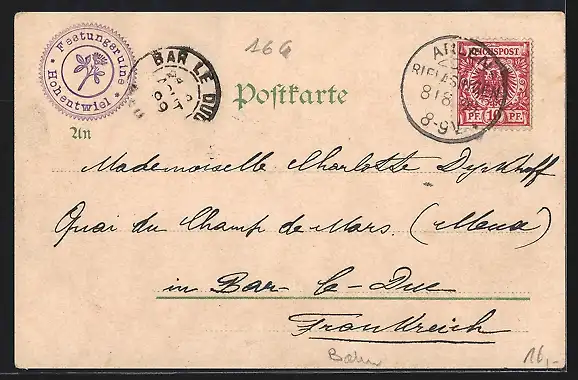 Festungsruine
* Hohentwiel *
BAR LE DUC
16G
Postkarte
REICHSPOST
PF. 10 PF.
ARLEN
RIELASINGEN
8-9V
An
Mademoiselle Charlotte Dyckhoff
Quai du Champ de Mars. (Meuse)
in Bar-le-Duc
Frankreich
16,-